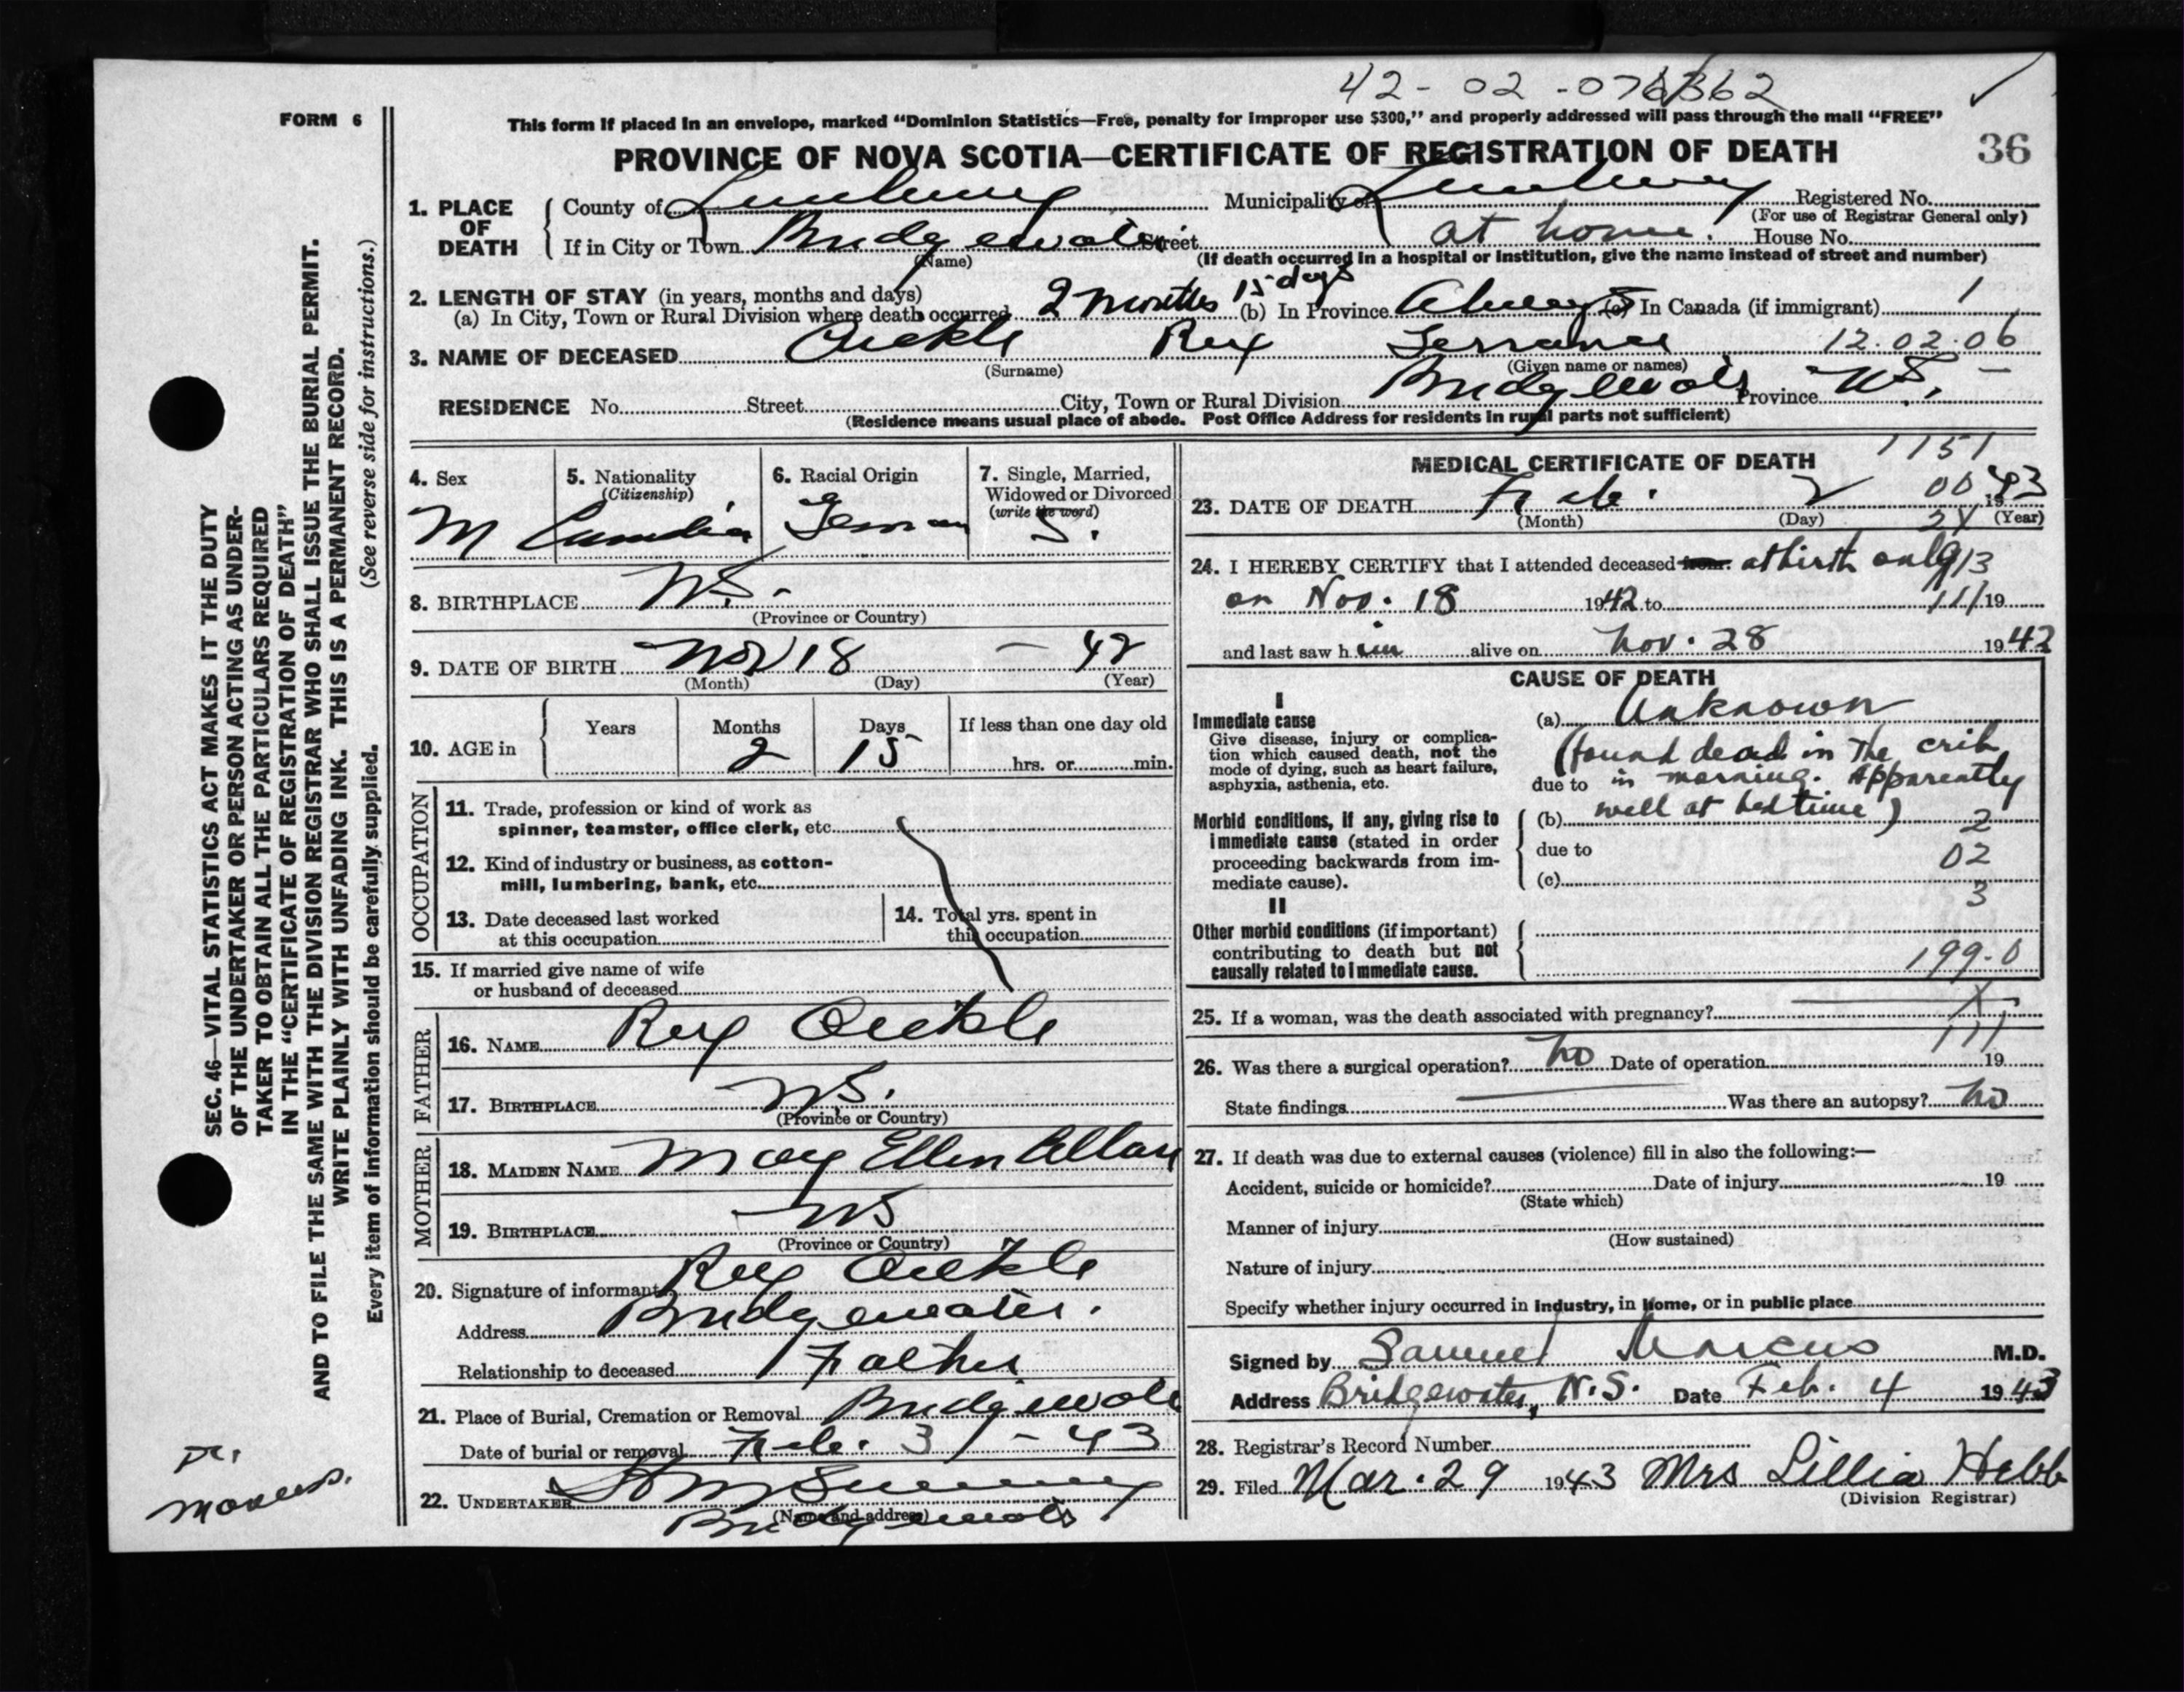 42-02-076362
FORM 6
This form if placed in an envelope, marked "Dominion Statistics—Free, penalty for improper use $300," and properly addressed will pass through the mail "FREE"
PROVINCE OF NOVA SCOTIA—CERTIFICATE OF REGISTRATION OF DEATH 36
1. PLACE OF DEATH
County of Lunenburg Municipality of Lunenburg Registered No.
(For use of Registrar General only)
If in City or Town Bridgewater Street at home. House No.
(Name) (If death occurred in a hospital or institution, give the name instead of street and number)
2. LENGTH OF STAY (in years, months and days)
(a) In City, Town or Rural Division where death occurred 2 months 15 days (b) In Province Always (c) In Canada (if immigrant) 1
3. NAME OF DECEASED Oickle Rex Terrance 12.02.06
(Surname) (Given name or names)
RESIDENCE No. Street City, Town or Rural Division Bridgewater Province N.S.
(Residence means usual place of abode. Post Office Address for residents in rural parts not sufficient)
4. Sex
M
5. Nationality
(Citizenship)
Canadian
6. Racial Origin
German
7. Single, Married,
Widowed or Divorced
(write the word)
S.
8. BIRTHPLACE N.S.
(Province or Country)
9. DATE OF BIRTH Nov 18 — 42
(Month) (Day) (Year)
10. AGE in
Years Months Days If less than one day old
2 15 hrs. or min.
OCCUPATION
11. Trade, profession or kind of work as
spinner, teamster, office clerk, etc.
12. Kind of industry or business, as cotton-
mill, lumbering, bank, etc.
13. Date deceased last worked
at this occupation
14. Total yrs. spent in
this occupation
15. If married give name of wife
or husband of deceased
FATHER
16. NAME Rex Oickle
17. BIRTHPLACE N.S.
(Province or Country)
MOTHER
18. MAIDEN NAME Mary Ellen Allan
19. BIRTHPLACE NS
(Province or Country)
20. Signature of informant Rex Oickle
Address Bridgewater.
Relationship to deceased Father
21. Place of Burial, Cremation or Removal Bridgewater
Date of burial or removal Feb. 3 - 43
22. UNDERTAKER
(Name and address)
Bridgewater
1151
MEDICAL CERTIFICATE OF DEATH
23. DATE OF DEATH Feb. 2 00 1943
(Month) (Day) (Year)
24. I HEREBY CERTIFY that I attended deceased from at birth only 913
on Nov. 18 1942 to 111 19
and last saw him alive on Nov. 28 1942
CAUSE OF DEATH
I
Immediate cause
Give disease, injury or complica-
tion which caused death, not the
mode of dying, such as heart failure,
asphyxia, asthenia, etc.
(a) Unknown
(found dead in the crib
due to in morning. Apparently
Morbid conditions, if any, giving rise to
immediate cause (stated in order
proceeding backwards from im-
mediate cause).
(b) well at bedtime) 2
due to 02
(c)
3
II
Other morbid conditions (if important)
contributing to death but not
causally related to immediate cause.
199-0
25. If a woman, was the death associated with pregnancy? X
111
26. Was there a surgical operation? no Date of operation 19
State findings Was there an autopsy? no
27. If death was due to external causes (violence) fill in also the following:—
Accident, suicide or homicide? Date of injury 19
(State which)
Manner of injury
(How sustained)
Nature of injury
Specify whether injury occurred in Industry, in Home, or in public place
Signed by Samuel Marcus M.D.
Address Bridgewater, N.S. Date Feb. 4 1943
28. Registrar's Record Number
29. Filed Mar. 29 1943 Mrs Lillia Hebb
(Division Registrar)
SEC. 46—VITAL STATISTICS ACT MAKES IT THE DUTY
OF THE UNDERTAKER OR PERSON ACTING AS UNDER-
TAKER TO OBTAIN ALL THE PARTICULARS REQUIRED
IN THE "CERTIFICATE OF REGISTRATION OF DEATH"
AND TO FILE THE SAME WITH THE DIVISION REGISTRAR WHO SHALL ISSUE THE BURIAL PERMIT.
WRITE PLAINLY WITH UNFADING INK. THIS IS A PERMANENT RECORD.
Every item of information should be carefully supplied. (See reverse side for instructions.)
Dr.
Marcus.